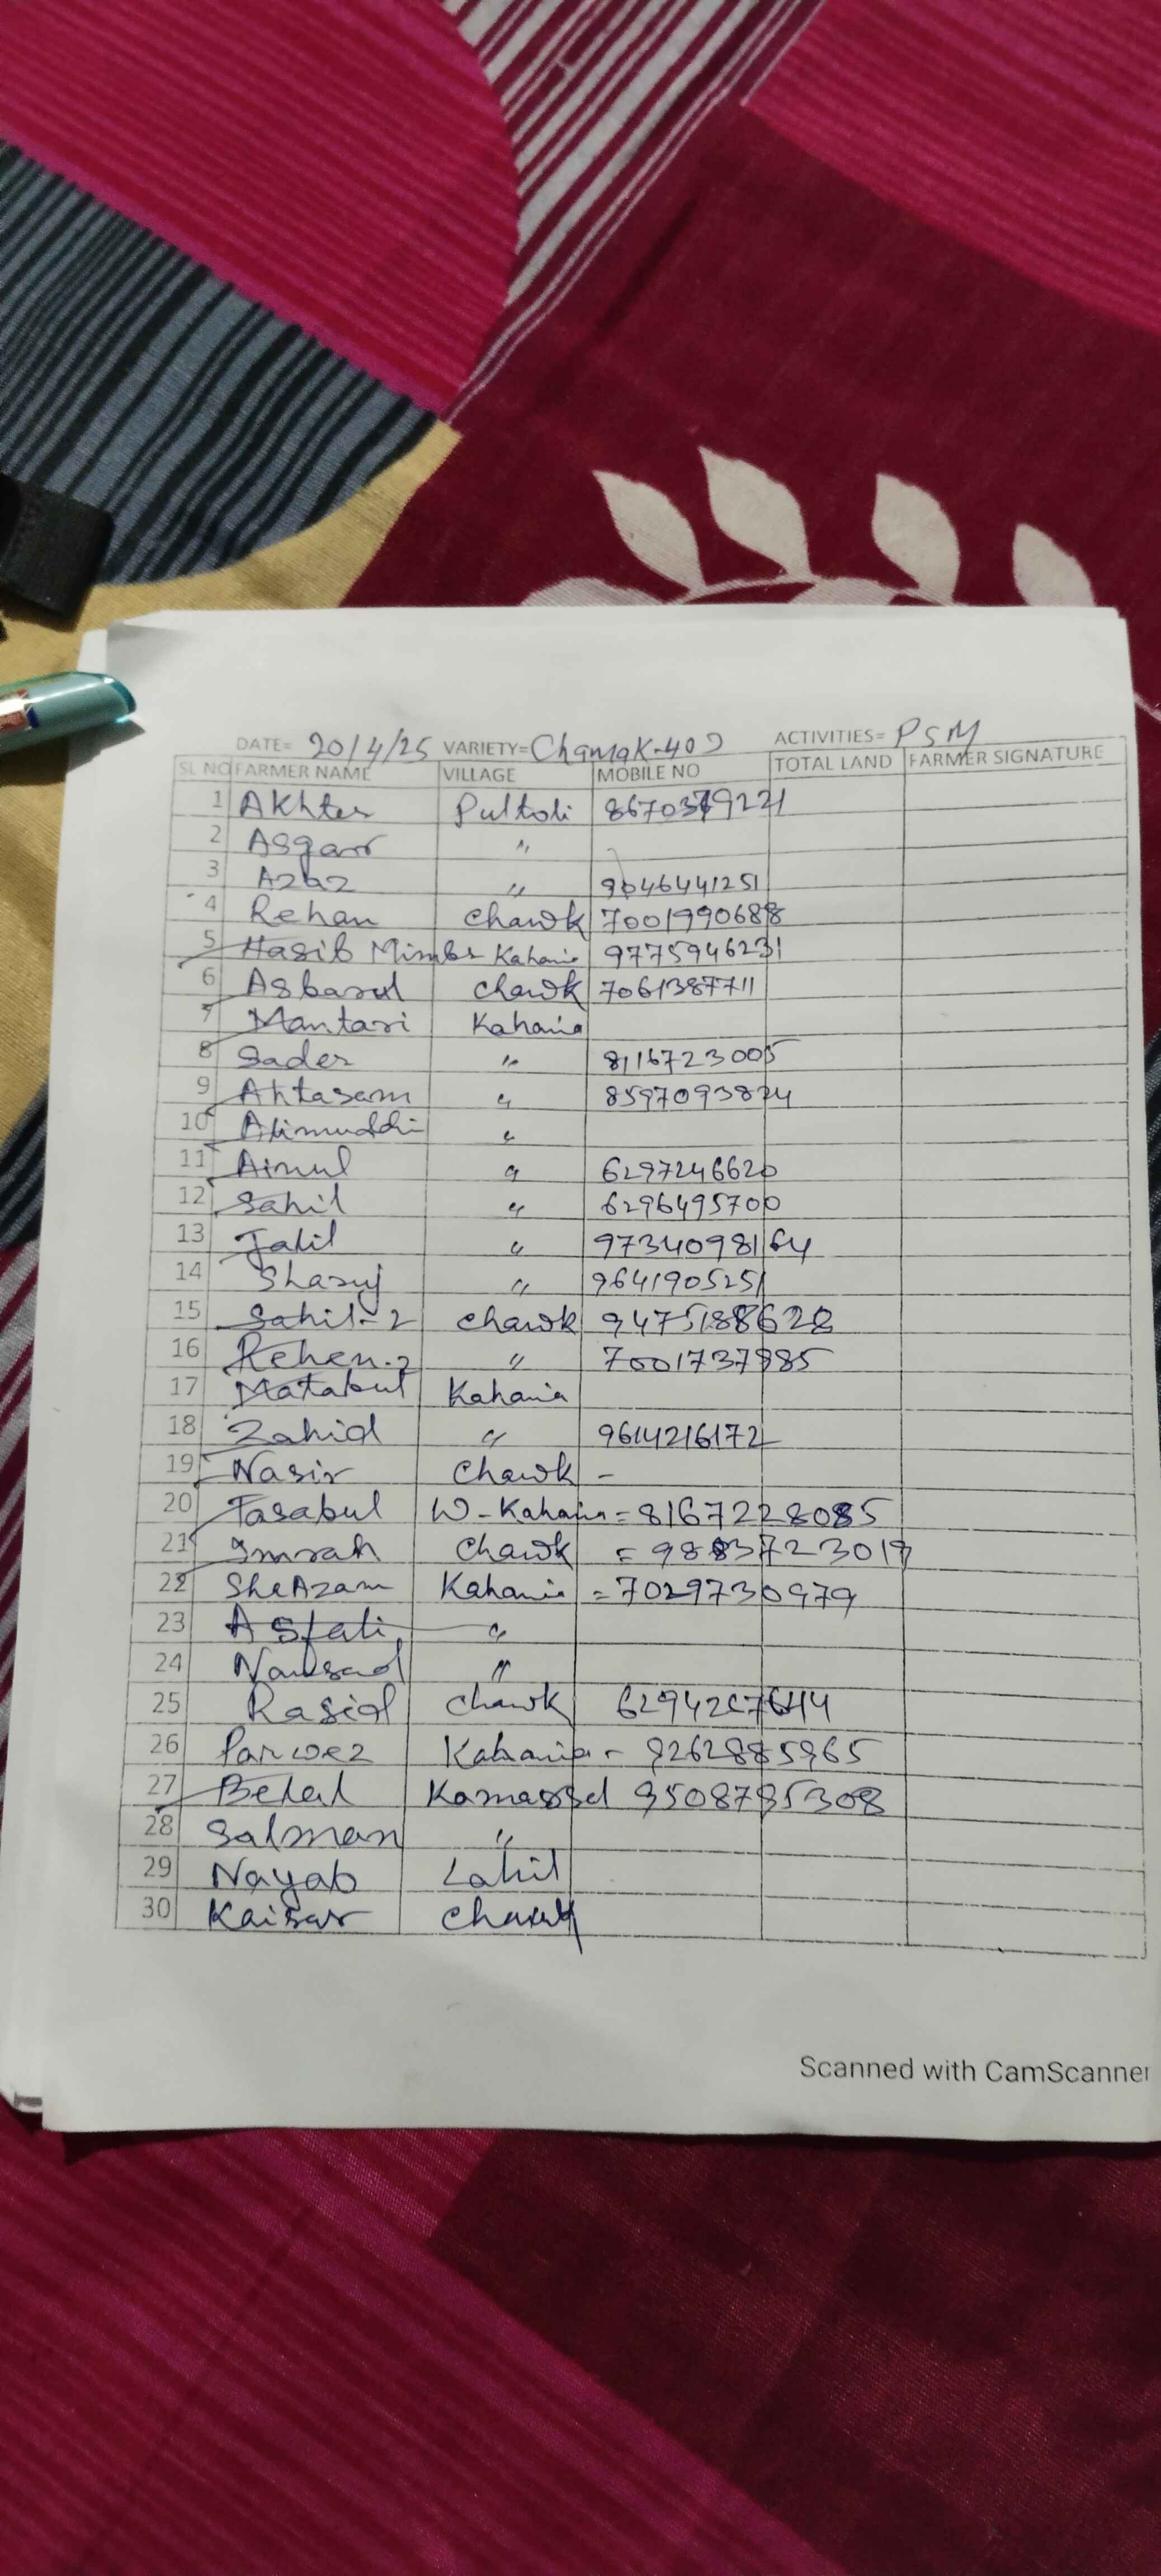 DATE= 20/4/25 VARIETY= Chamak-402 ACTIVITIES= PSM
SL NO FARMER NAME VILLAGE MOBILE NO TOTAL LAND FARMER SIGNATURE
1 Akhter Pultoli
2 Asgar "
3 Azaz " 9046441251
4 Rehan Chawk 7001990688
5 Hasib Kahania 9775946231
6 Asbarul Chawk 7061387711
7 Mantari Kahania
8 Sader " 8116723005
9 Ahtasam " 8597093824
10 Alimuddin "
11 Ainul " 6297246620
12 Sahil " 6296495700
13 Jalil " 9734098164
14 Sharuj " 9641905251
15 Sahil-2 Chawk 9475188628
16 Rehen-2 " 7001737985
17 Matabul Kahania
18 Zahid " 9614216172
19 Nasir Chawk -
20 Tasabul W-Kahania = 8167228085
21 Imrah Chawk =
22 SheAzam Kahania = 7029730979
23 Asfali "
24 Nausad "
25 Rasid Chawk
26 Parwez Kahania - 9262885965
27 Belal 9508795308
28 Salman "
29 Nayab Lahil
30 Kaisar Chawk
Scanned with CamScanner